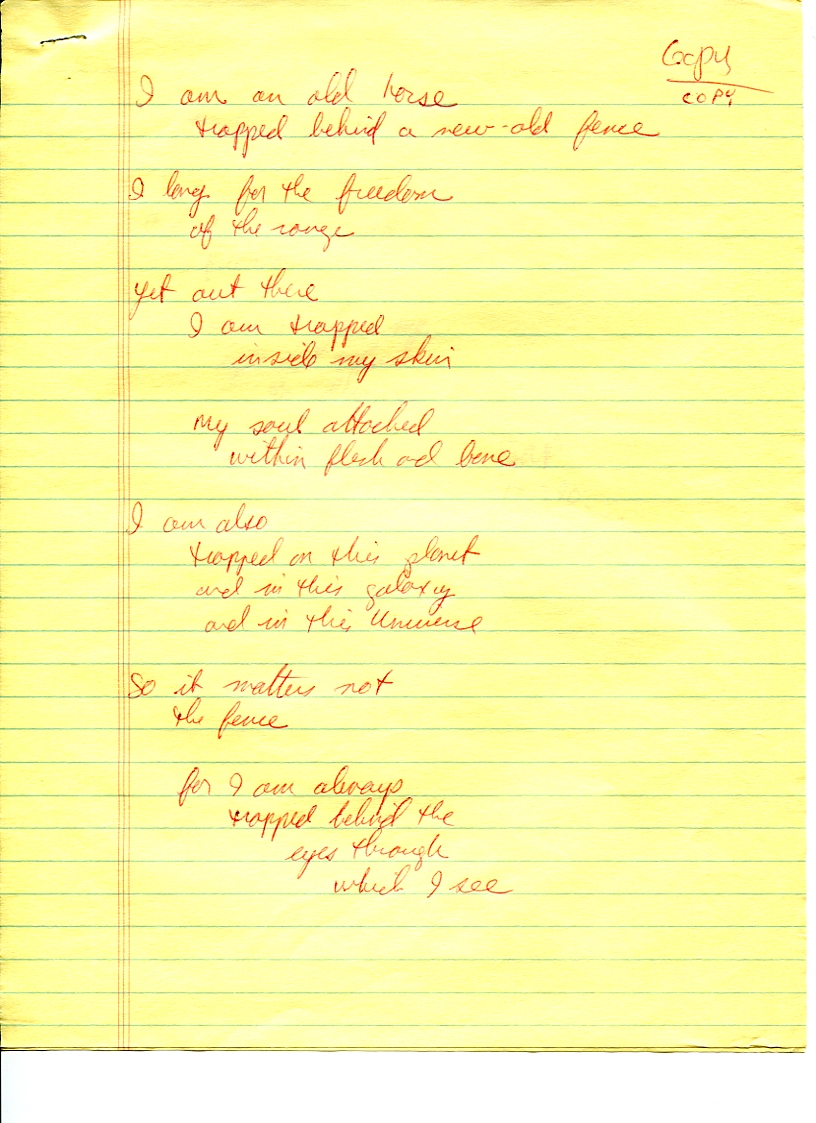 Copy
COPY
I am an old horse
trapped behind a new-old fence
I long for the freedom
of the range
yet out there
I am trapped
inside my skin
my soul attached
within flesh and bone
I am also
trapped on this planet
and in this galaxy
and in this Universe
So it matters not
the fence
for I am always
trapped behind the
eyes through
which I see